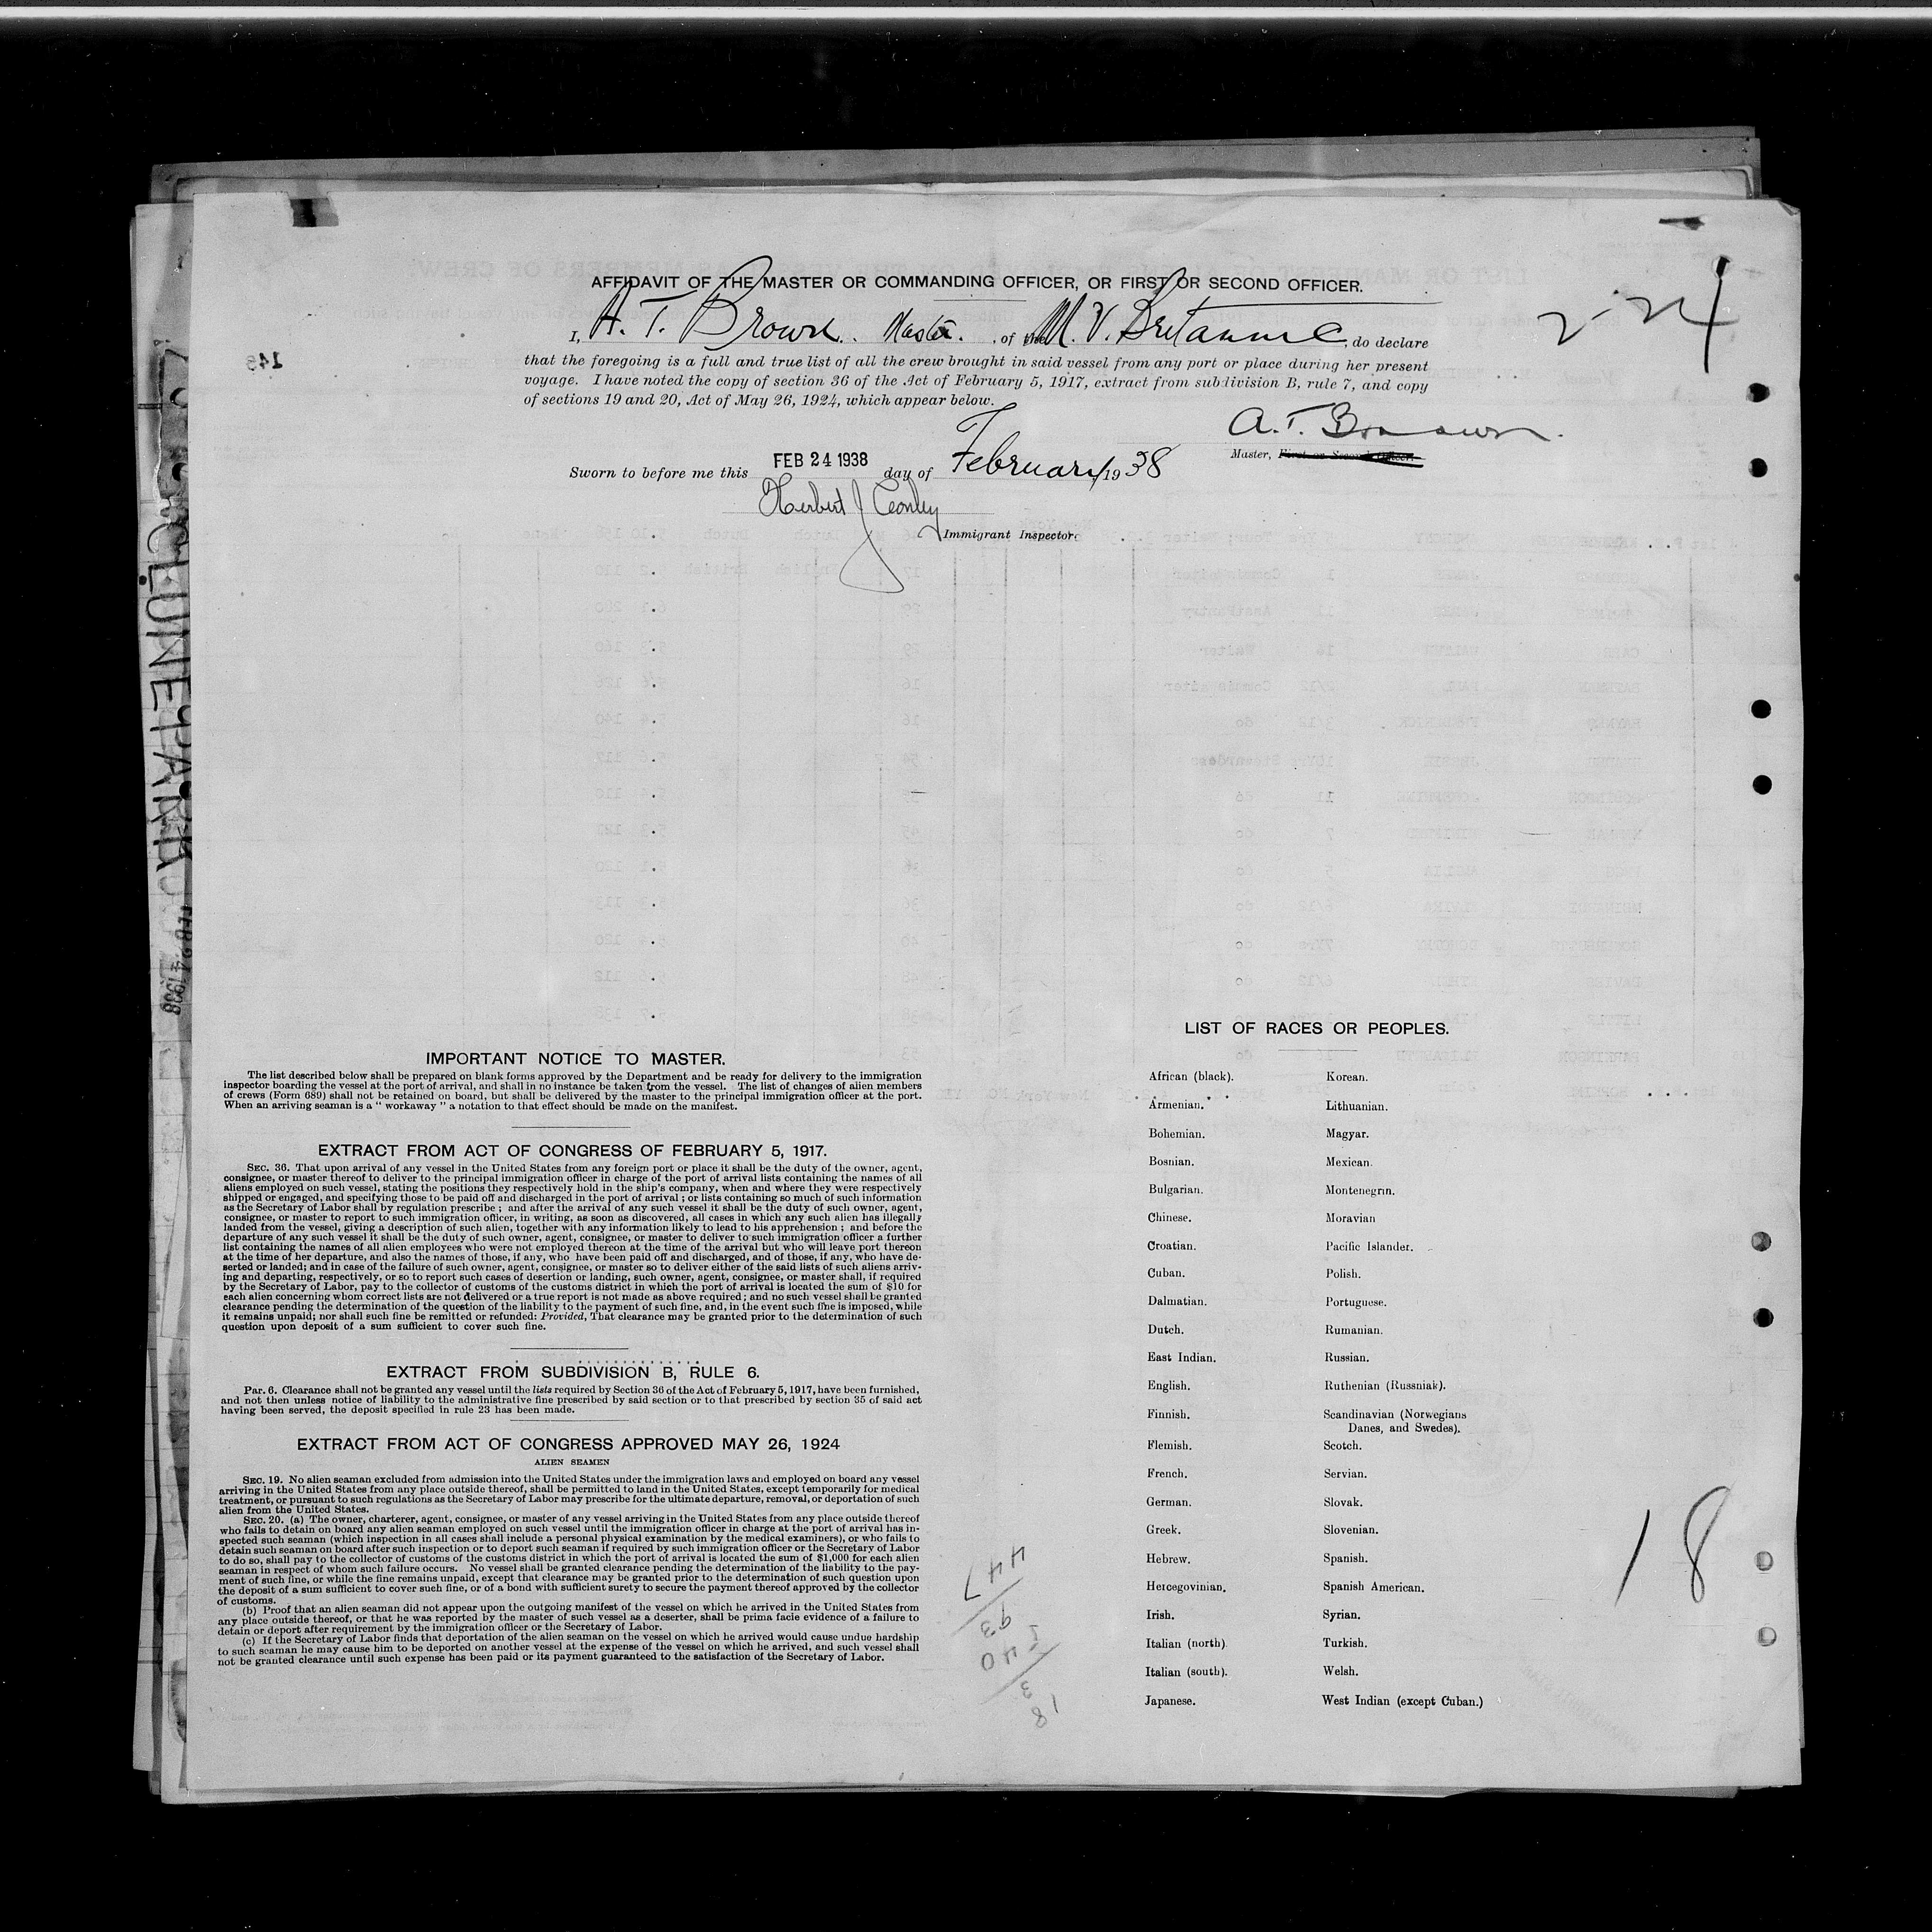 AFFIDAVIT OF THE MASTER OR COMMANDING OFFICER, OR FIRST OR SECOND OFFICER.
2-24
I, A. T. Brown. Master. of the M. V. Britannic, do declare
that the foregoing is a full and true list of all the crew brought in said vessel from any port or place during her present
voyage. I have noted the copy of section 36 of the Act of February 5, 1917, extract from subdivision B, rule 7, and copy
of sections 19 and 20, Act of May 26, 1924, which appear below.
A. T. Brown.
Master, First or Second Officer.
Sworn to before me this FEB 24 1938 day of February 1938
Herbert J
Immigrant Inspector.
148
FEB 24 1938
IMPORTANT NOTICE TO MASTER.
The list described below shall be prepared on blank forms approved by the Department and be ready for delivery to the immigration
inspector boarding the vessel at the port of arrival, and shall in no instance be taken from the vessel. The list of changes of alien members
of crews (Form 689) shall not be retained on board, but shall be delivered by the master to the principal immigration officer at the port.
When an arriving seaman is a " workaway " a notation to that effect should be made on the manifest.
EXTRACT FROM ACT OF CONGRESS OF FEBRUARY 5, 1917.
SEC. 36. That upon arrival of any vessel in the United States from any foreign port or place it shall be the duty of the owner, agent,
consignee, or master thereof to deliver to the principal immigration officer in charge of the port of arrival lists containing the names of all
aliens employed on such vessel, stating the positions they respectively hold in the ship's company, when and where they were respectively
shipped or engaged, and specifying those to be paid off and discharged in the port of arrival ; or lists containing so much of such information
as the Secretary of Labor shall by regulation prescribe ; and after the arrival of any such vessel it shall be the duty of such owner, agent,
consignee, or master to report to such immigration officer, in writing, as soon as discovered, all cases in which any such alien has illegally
landed from the vessel, giving a description of such alien, together with any information likely to lead to his apprehension ; and before the
departure of any such vessel it shall be the duty of such owner, agent, consignee, or master to deliver to such immigration officer a further
list containing the names of all alien employees who were not employed thereon at the time of the arrival but who will leave port thereon
at the time of her departure, and also the names of those, if any, who have been paid off and discharged, and of those, if any, who have de-
serted or landed; and in case of the failure of such owner, agent, consignee, or master so to deliver either of the said lists of such aliens arriv-
ing and departing, respectively, or so to report such cases of desertion or landing, such owner, agent, consignee, or master shall, if required
by the Secretary of Labor, pay to the collector of customs of the customs district in which the port of arrival is located the sum of $10 for
each alien concerning whom correct lists are not delivered or a true report is not made as above required; and no such vessel shall be granted
clearance pending the determination of the question of the liability to the payment of such fine, and, in the event such fine is imposed, while
it remains unpaid; nor shall such fine be remitted or refunded: Provided, That clearance may be granted prior to the determination of such
question upon deposit of a sum sufficient to cover such fine.
EXTRACT FROM SUBDIVISION B, RULE 6.
Par. 6. Clearance shall not be granted any vessel until the lists required by Section 36 of the Act of February 5, 1917, have been furnished,
and not then unless notice of liability to the administrative fine prescribed by said section or to that prescribed by section 35 of said act
having been served, the deposit specified in rule 23 has been made.
EXTRACT FROM ACT OF CONGRESS APPROVED MAY 26, 1924
ALIEN SEAMEN
SEC. 19. No alien seaman excluded from admission into the United States under the immigration laws and employed on board any vessel
arriving in the United States from any place outside thereof, shall be permitted to land in the United States, except temporarily for medical
treatment, or pursuant to such regulations as the Secretary of Labor may prescribe for the ultimate departure, removal, or deportation of such
alien from the United States.
SEC. 20. (a) The owner, charterer, agent, consignee, or master of any vessel arriving in the United States from any place outside thereof
who fails to detain on board any alien seaman employed on such vessel until the immigration officer in charge at the port of arrival has in-
spected such seaman (which inspection in all cases shall include a personal physical examination by the medical examiners), or who fails to
detain such seaman on board after such inspection or to deport such seaman if required by such immigration officer or the Secretary of Labor
to do so, shall pay to the collector of customs of the customs district in which the port of arrival is located the sum of $1,000 for each alien
seaman in respect of whom such failure occurs. No vessel shall be granted clearance pending the determination of the liability to the pay-
ment of such fine, or while the fine remains unpaid, except that clearance may be granted prior to the determination of such question upon
the deposit of a sum sufficient to cover such fine, or of a bond with sufficient surety to secure the payment thereof approved by the collector
of customs.
(b) Proof that an alien seaman did not appear upon the outgoing manifest of the vessel on which he arrived in the United States from
any place outside thereof, or that he was reported by the master of such vessel as a deserter, shall be prima facie evidence of a failure to
detain or deport after requirement by the immigration officer or the Secretary of Labor.
(c) If the Secretary of Labor finds that deportation of the alien seaman on the vessel on which he arrived would cause undue hardship
to such seaman he may cause him to be deported on another vessel at the expense of the vessel on which he arrived, and such vessel shall
not be granted clearance until such expense has been paid or its payment guaranteed to the satisfaction of the Secretary of Labor.
447
93
40
3
18
LIST OF RACES OR PEOPLES.
African (black). Korean.
Armenian. Lithuanian.
Bohemian. Magyar.
Bosnian. Mexican.
Bulgarian. Montenegrin.
Chinese. Moravian
Croatian. Pacific Islander.
Cuban. Polish.
Dalmatian. Portuguese.
Dutch. Rumanian.
East Indian. Russian.
English. Ruthenian (Russniak).
Finnish. Scandinavian (Norwegians
Danes, and Swedes).
Flemish. Scotch.
French. Servian.
German. Slovak.
Greek. Slovenian.
Hebrew. Spanish.
Hercegovinian. Spanish American.
Irish. Syrian.
Italian (north) Turkish.
Italian (south). Welsh.
Japanese. West Indian (except Cuban.)
18